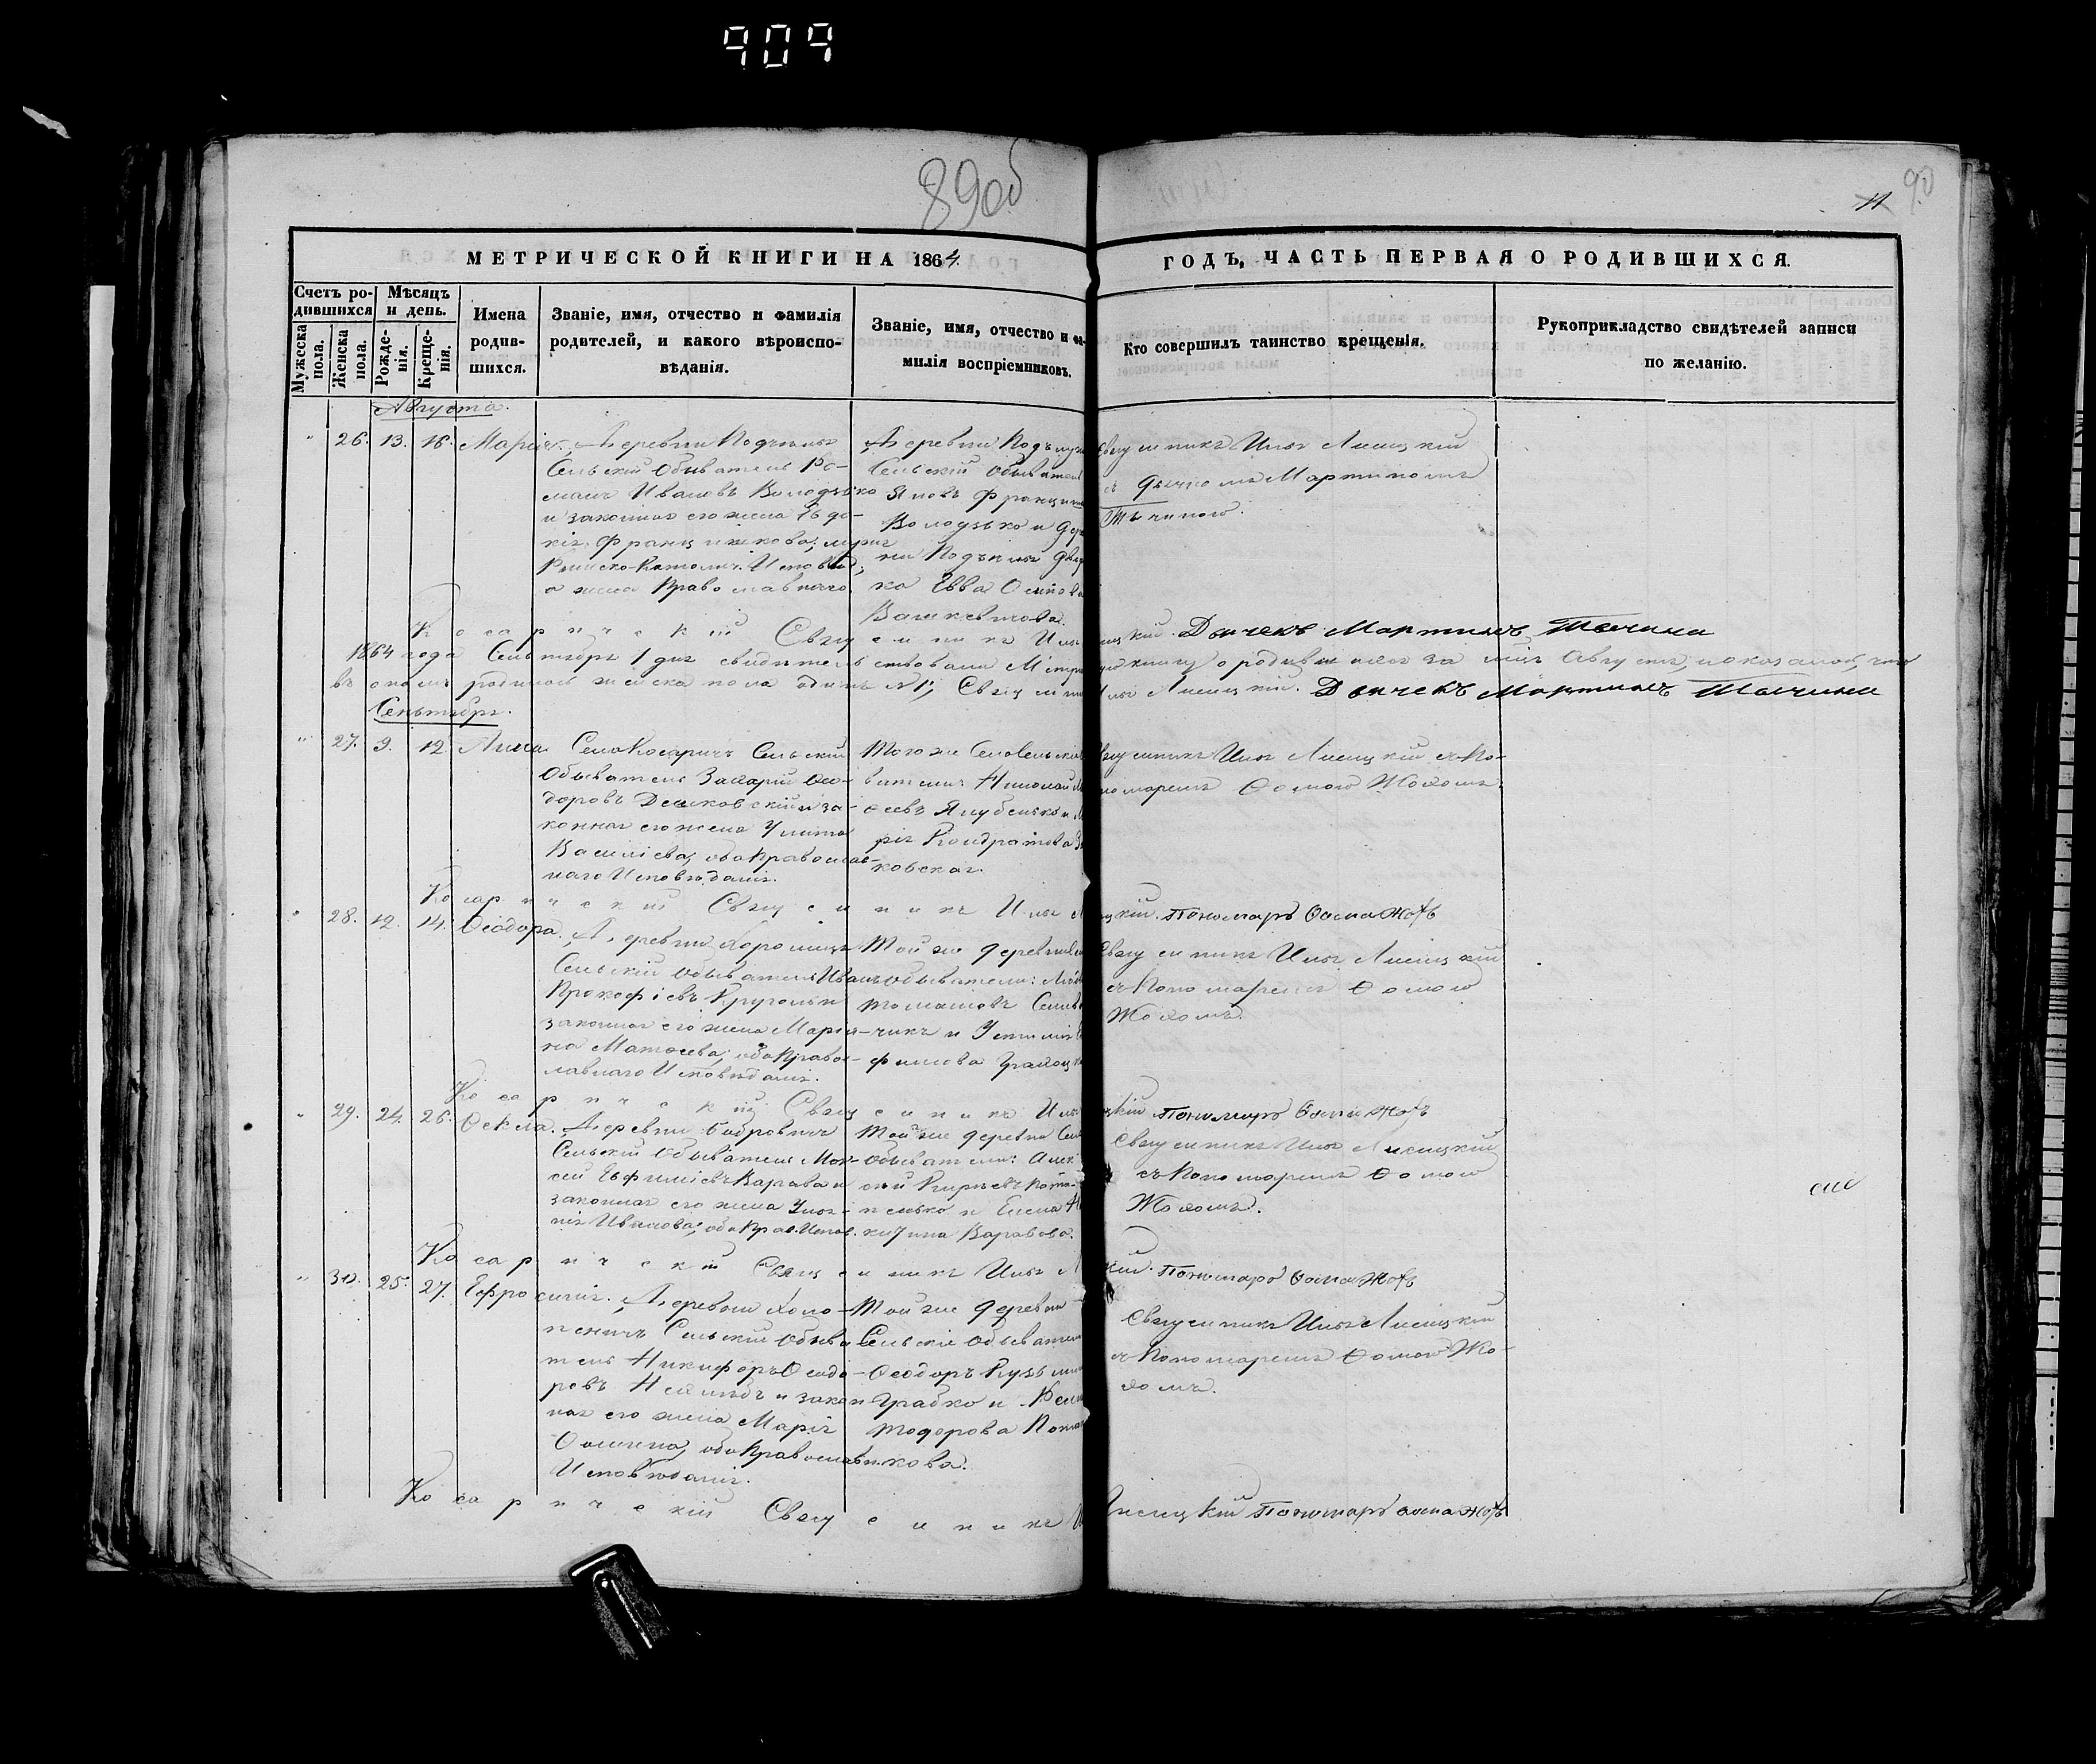 909
89об
90
11
МЕТРИЧЕСКОЙ КНИГИ НА 1864
ГОДЪ, ЧАСТЬ ПЕРВАЯ О РОДИВШИХСЯ.
Счетъ ро-
дившихся
Мужеска пола.
Женска пола.
Мѣсяцъ
и день.
Рожде-
нія.
Креще-
нія.
Имена
родив-
шихся.
Званіе, имя, отчество и фамилія
родителей, и какого вѣроиспо-
вѣданія.
Званіе, имя, отчество и фа-
милія воспріемниковъ.
Кто совершилъ таинство крещенія.
Рукоприкладство свидѣтелей записи
по желанію.
Августа.
" 26. 13. 16. Марія
Деревни
Сельскій Обыватель Ро-
манъ Ивановъ Володзько
и законная его жена Евдо-
кія Францишкова; мужъ
Римско-Католич. Исповѣд,
а жена Православнаго.
Деревни
Сельскій Обывател
Яковъ Франциш
Володзько и
ка Евва Осипова
Вашкевичова.
Священникъ Илья Лисицкій
съ дьячкомъ Мартиномъ
Тычиною.
Косаричскій Священникъ Илья Лисицкій. Дьячекъ Мартинъ Тычина
1864 года Сентября 1 дня свидѣтельствовали Метрическую книгу о родившихся за мцъ Августъ, показаной, что
въ ономъ родилось женска пола одинъ №1, Священникъ Илья Лисицкій. Дьячекъ Мартинъ Тычина
Сентября.
" 27. 9. 12. Анна
Село Косаричъ Сельскій
Обыватель Захарій Ѳео-
доровъ Дешковскій и за-
конная его жена Улита
Василіева, оба Православ-
наго Исповѣданія.
Того же Села Сельскіе
ватели: Николай
сеевъ Якубенько и
рія Кондратова
ковская.
Священникъ Илья Лисицкій съ По-
номаремъ Ѳомою Жохомъ.
Косаричскій Священникъ Илья Лисицкій. Пономарь Ѳома Жохъ
" 28. 12. 14. Ѳеодора.
Деревни
Сельскій обыватель Иванъ
Прокофіевъ Кругольи
законная его жена Мария-
на Матѳеева; оба Правос-
лавнаго Исповѣданія.
Той же деревни
обыватели:
Томашовъ
чикъ и Устинія
фимова
Священникъ Илья Лисицкій
съ Пономаремъ Ѳомою
Жохомъ.
Косаричскій Священникъ Илья Лисицкій. Пономарь Ѳома Жохъ
" 29. 24. 26. Ѳекла.
Деревни Бобровичъ
Сельскій Обыватель Мои-
сей Ефиміевъ Карава и
законная его жена Улья-
нія Иванова; оба Прав. Испов.
Той же деревни Сель
обыватели: Алек
сей Киріевъ
пенько и Елена
китина Каравова.
Священникъ Илья Лисицкій
съ Пономаремъ Ѳомою
Жохомъ.
Косаричскій Священникъ Илья Лисицкій. Пономарь Ѳома Жохъ
" 30. 25. 27. Ефросинія.
Деревни Холо-
пеничъ Сельскій Обыва-
тель Никифоръ Ѳеодо-
ровъ
и закон-
ная его жена Марія
Ѳомина, оба Православн.
Исповѣданія.
Той же деревни
Сельскіе Обывател
Ѳеодоръ Кузьмин
Грабко и
Тодорова
кова.
Священникъ Илья Лисицкій
съ Пономаремъ Ѳомою Жо-
хомъ.
Косаричскій Священникъ Илья Лисицкій Пономарь Ѳома Жохъ